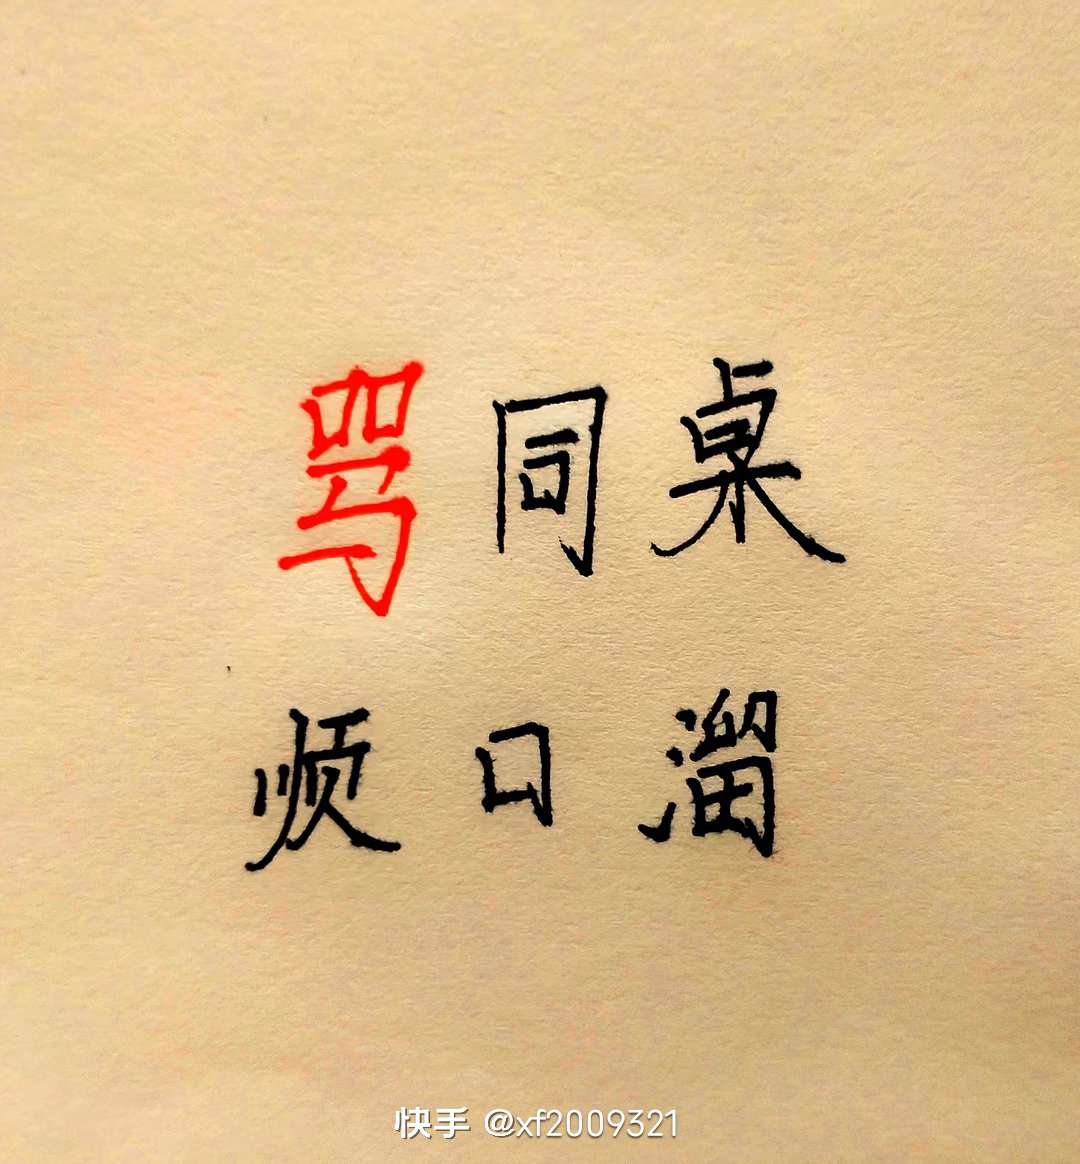 骂同桌
烦口溜
快手 @xf2009321